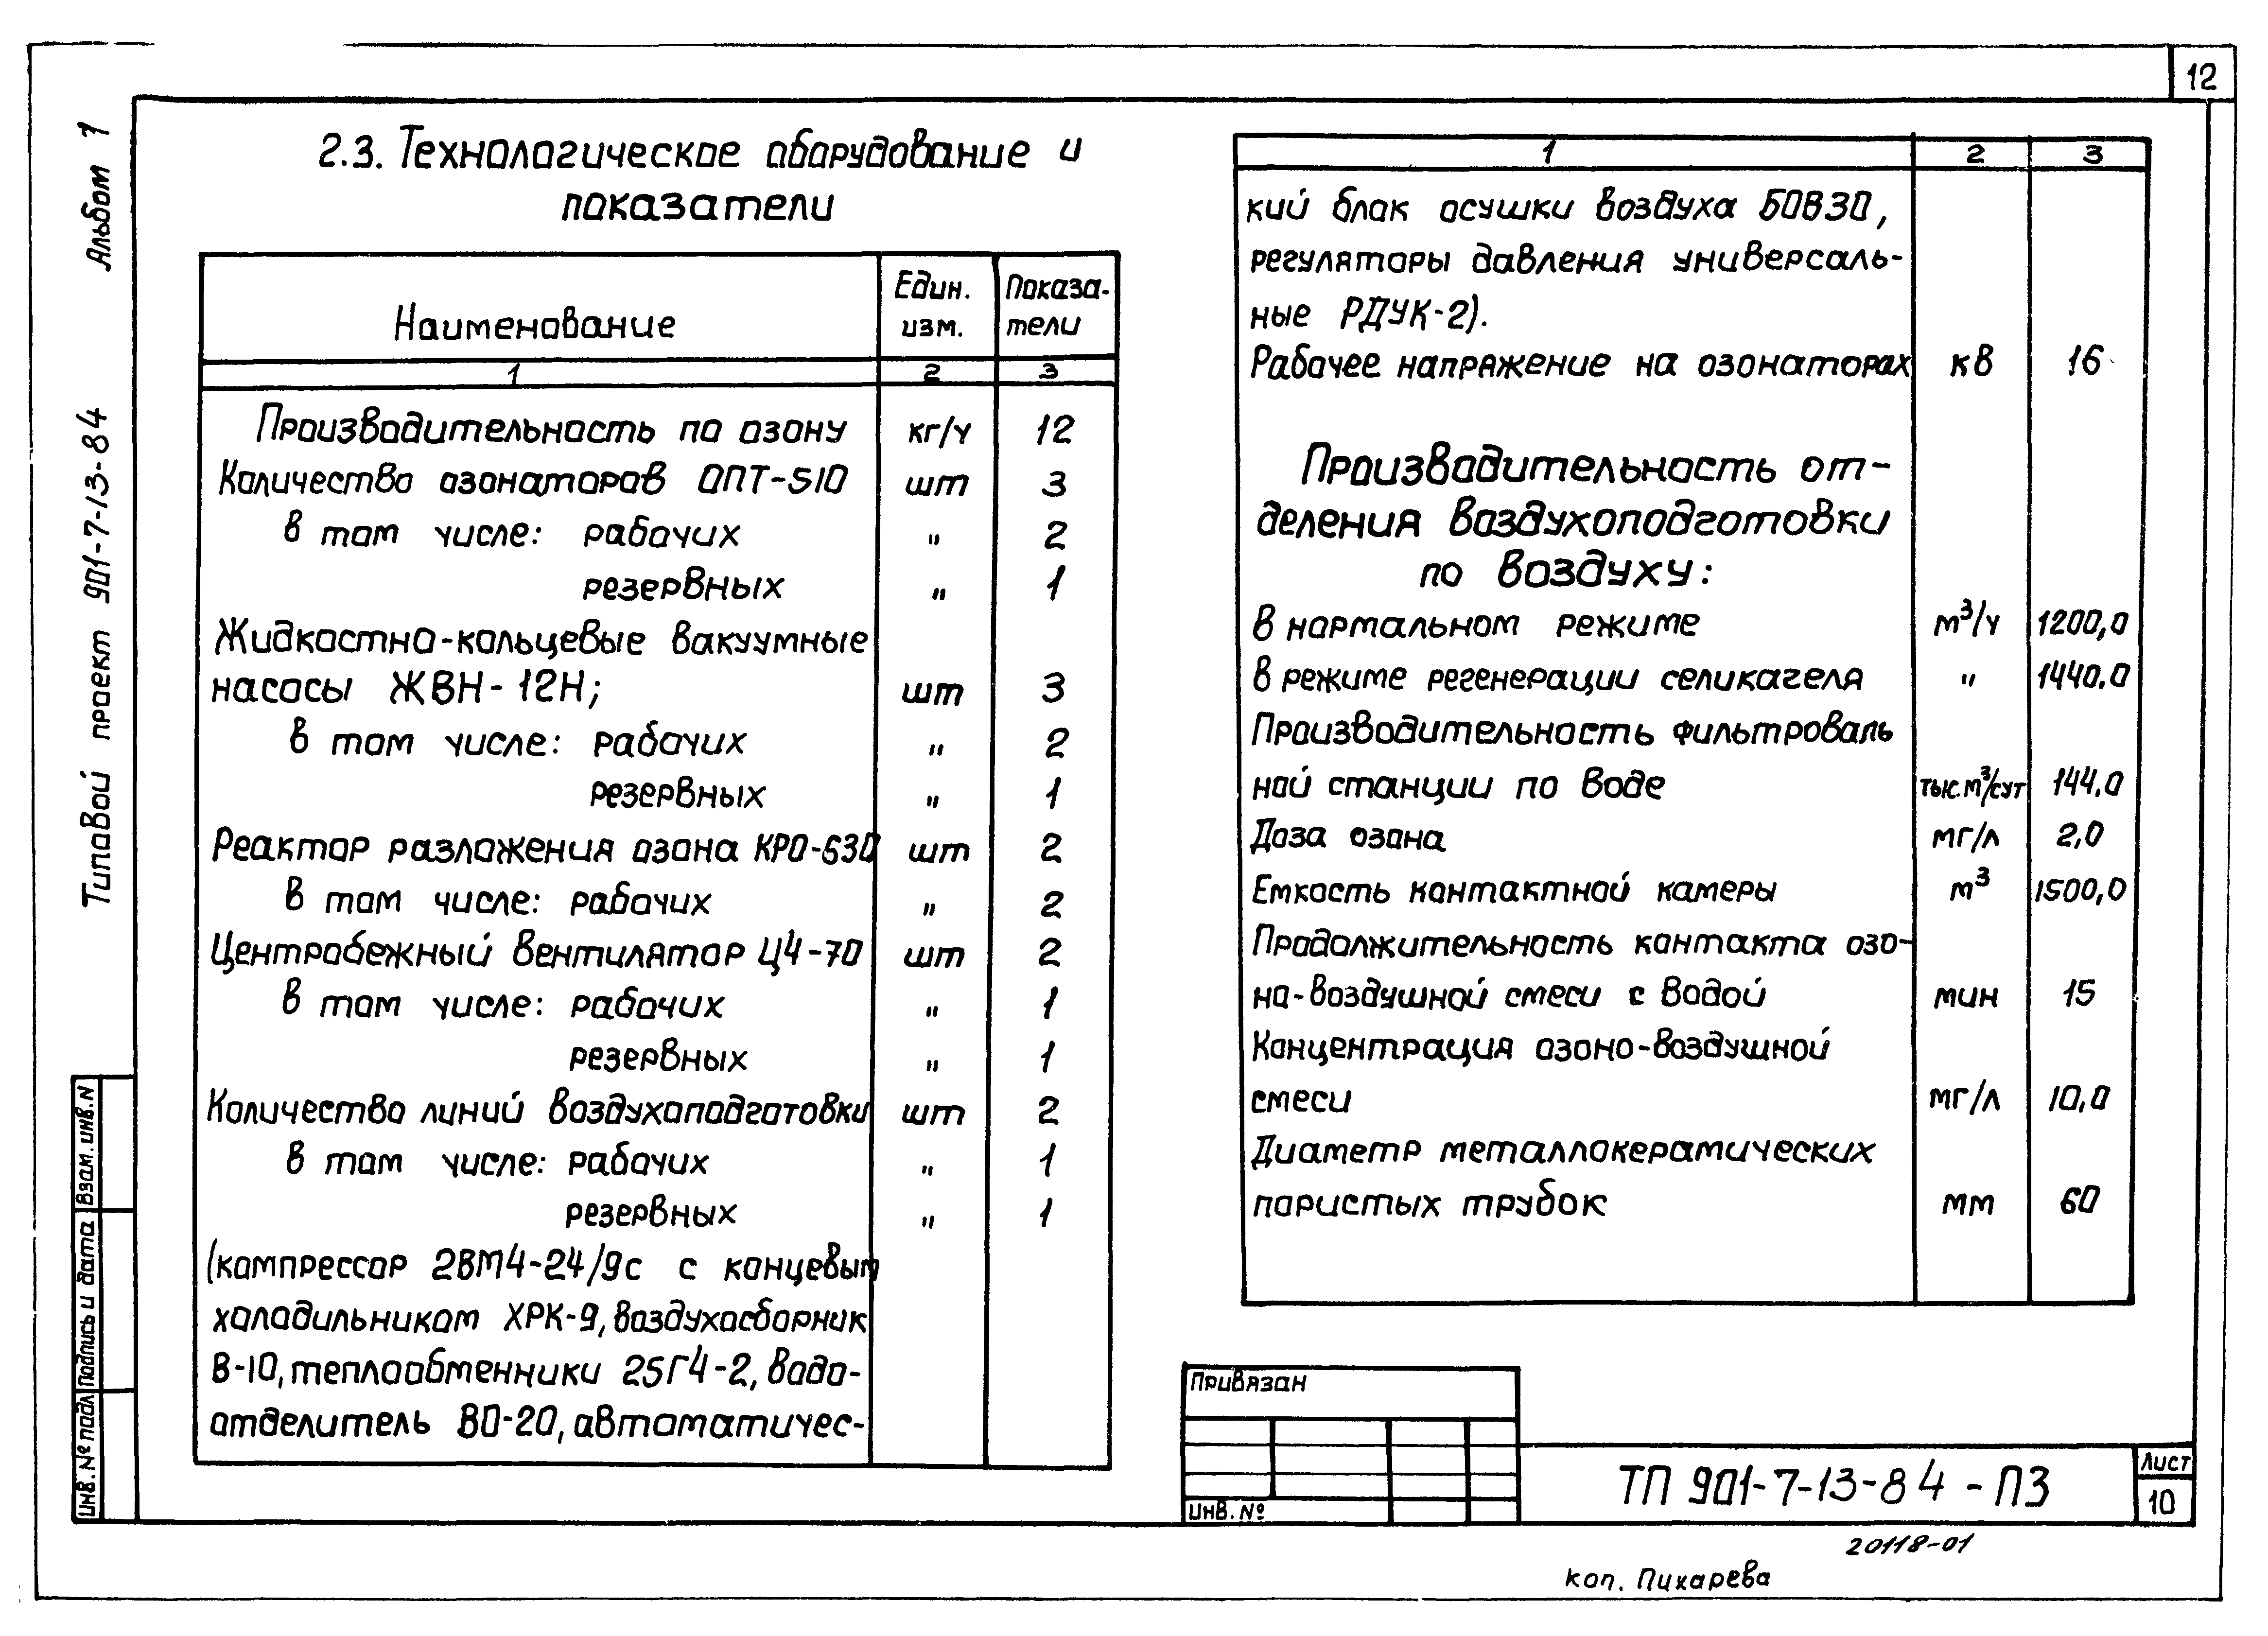 12
Альбом 1
Типовой проект 901-7-13-84
2.3. Технологическое оборудование и
показатели
Наименование Един. изм. Показа-тели
1 2 3
Производительность по озону кг/ч 12
Количество озонаторов ОПТ-510 шт 3
в том числе: рабочих " 2
резервных " 1
Жидкостно-кольцевые вакуумные
насосы ЖВН-12Н; шт 3
в том числе: рабочих " 2
резервных " 1
Реактор разложения озона КРО-630 шт 2
в том числе: рабочих " 2
Центробежный вентилятор Ц4-70 шт 2
в том числе: рабочих " 1
резервных " 1
Количество линий воздухоподготовки шт 2
в том числе: рабочих " 1
резервных " 1
(компрессор 2ВМ4-24/9с с концевым
холодильником ХРК-9, воздухосборник
В-10, теплообменники 25Г4-2, водо-
отделитель ВО-20, автоматичес-
1 2 3
кий блок осушки воздуха БОВ30,
регуляторы давления универсаль-
ные РДУК-2).
Рабочее напряжение на озонаторах кВ 16
Производительность от-
деления воздухоподготовки
по воздуху:
в нормальном режиме м³/ч 1200,0
в режиме регенерации селикагеля " 1440.0
Производительность фильтроваль
ной станции по воде тыс.м³/сут 144,0
Доза озона мг/л 2,0
Емкость контактной камеры м³ 1500,0
Продолжительность контакта озо-
но-воздушной смеси с водой мин 15
Концентрация озоно-воздушной
смеси мг/л 10,0
Диаметр металлокерамических
пористых трубок мм 60
Инв. № подл Подпись и дата Взам. инв. N
Привязан
Инв. №
ТП 901-7-13-84-ПЗ
Лист
10
20118-01
коп. Пихарева